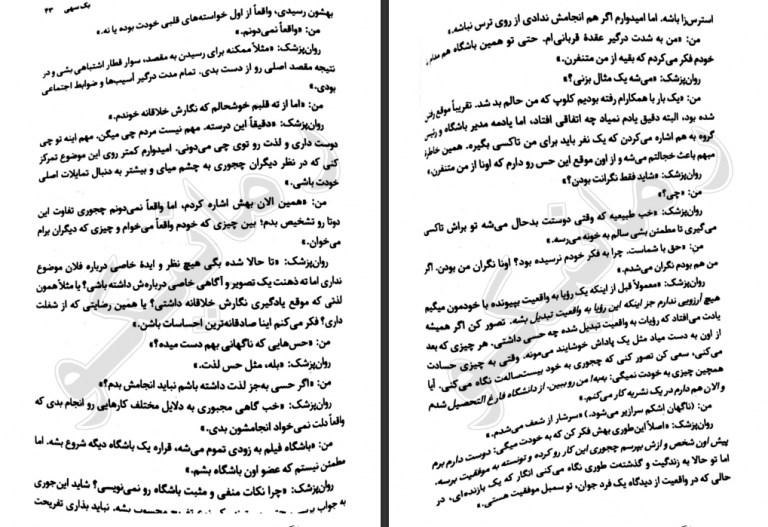 استرس‌زا باشه. اما امیدوارم اگر هم انجامش ندادی از روی ترس نباشه.»
من: «من به شدت درگیر عقدهٔ قربانی‌ام. حتی تو همین باشگاه هم مدام
خودم فکر می‌کردم که بقیه از من متنفرن.»
روان‌پزشک: «می‌شه یک مثال بزنی؟»
من: «یک بار با همکارام رفته بودیم کلوپ که من حالم بد شد. تقریباً موقع رفتن
شده بود، البته دقیق یادم نمیاد چه اتفاقی افتاد، اما یادمه مدیر باشگاه و رئیس
گروه به هم اشاره می‌کردن که یک نفر باید برای من تاکسی بگیره. همین خاطرهٔ
مبهم باعث خجالتم می‌شه و از اون موقع این حس رو دارم که اونا از من متنفرن.»
روان‌پزشک: «شاید فقط نگرانت بودن؟»
من: «چی؟»
روان‌پزشک: «خب طبیعیه که وقتی دوستت بدحال می‌شه تو براش تاکسی
می‌گیری تا مطمئن بشی سالم به خونه می‌رسه.»
من: «حق با شماست. چرا به فکر خودم نرسیده بود؟ اونا نگران من بودن. اگر
من هم بودم نگران می‌شدم.»
روان‌پزشک: «معمولاً قبل از اینکه یک رؤیا به واقعیت بپیونده با خودمون میگیم
هیچ آرزویی ندارم جز اینکه این رؤیا به واقعیت تبدیل بشه. تصور کن اگر همیشه
یادت می‌افتاد که رؤیات به واقعیت تبدیل شده چه حسی داشتی. هر چیزی که بعد
از اون به دست میاد مثل یک پاداش خوشایند می‌مونه. وقتی به چیزی حسادت
می‌کنی، سعی کن تصور کنی که چجوری به خود بیست‌سالعت نگاه می‌کنی. آیا
همچین چیزی به خودت نمیگی: به‌به! من رو ببین. از دانشگاه فارغ التحصیل شدم
و الان هم دارم در یک نشریه کار می‌کنم.»
من: (ناگهان اشکم سرازیر می‌شود.) «سرشار از شعف می‌شدم.»
روان‌پزشک: «اصلاً این‌طوری بهش فکر کن که به خودت میگی: دوست دارم برم
پیش اون شخص و ازش بپرسم چجوری این کار رو کرده و تونسته به موفقیت برسه.
اما تو حالا به زندگیت و گذشته‌ت طوری نگاه می‌کنی انگار که یک بازنده‌ای، در
حالی که در واقعیت از دیدگاه یک فرد جوان، تو سمبل موفقیت هستی.»
بک سهی ۴۳
بهشون رسیدی، واقعاً از اول خواسته‌های قلبی خودت بوده یا نه.»
من: «واقعاً نمی‌دونم.»
روان‌پزشک: «مثلاً ممکنه برای رسیدن به مقصد، سوار قطار اشتباهی بشی و در
نتیجه مقصد اصلی رو از دست بدی. تمام مدت درگیر آسیب‌ها و ضوابط اجتماعی
بودی.»
من: «اما از ته قلبم خوشحالم که نگارش خلاقانه خوندم.»
روان‌پزشک: «دقیقاً این درسته. مهم نیست مردم چی میگن. مهم اینه تو چی
دوست داری و لذت رو توی چی می‌دونی. امیدوارم کمتر روی این موضوع تمرکز
کنی که در نظر دیگران چجوری به چشم میای و بیشتر به دنبال تمایلات اصلی
خودت باشی.»
من: «همین الان بهش اشاره کردم، اما واقعاً نمی‌دونم چجوری تفاوت این
دوتا رو تشخیص بدم؛ بین چیزی که خودم واقعاً می‌خوام و چیزی که دیگران برام
می‌خوان.»
روان‌پزشک: «تا حالا شده بگی هیچ نظر و ایدهٔ خاصی درباره فلان موضوع
نداری اما ته ذهنت یک تصویر و آگاهی خاصی درباره‌ش داشته باشی؟ یا مثلاً همون
لذتی که موقع یادگیری نگارش خلاقانه داشتی؟ یا همین رضایتی که از شغلت
داری؟ فکر می‌کنم اینا صادقانه‌ترین احساسات باشن.»
من: «حس‌هایی که ناگهانی بهم دست میده؟»
روان‌پزشک: «بله، مثل حس لذت.»
من: «اگر حسی به‌جز لذت داشته باشم نباید انجامش بدم؟»
روان‌پزشک: «خب گاهی مجبوری به دلایل مختلف کارهایی رو انجام بدی که
واقعاً دلت نمی‌خواد انجامشون بدی.»
من: «باشگاه فیلم به زودی تموم می‌شه، قراره یک باشگاه دیگه شروع بشه. اما
مطمئن نیستم که عضو اون باشگاه بشم.»
روان‌پزشک: «چرا نکات منفی و مثبت باشگاه رو نمی‌نویسی؟ شاید این‌جوری
به جواب محسوب بشه. نباید بذاری تفریحت